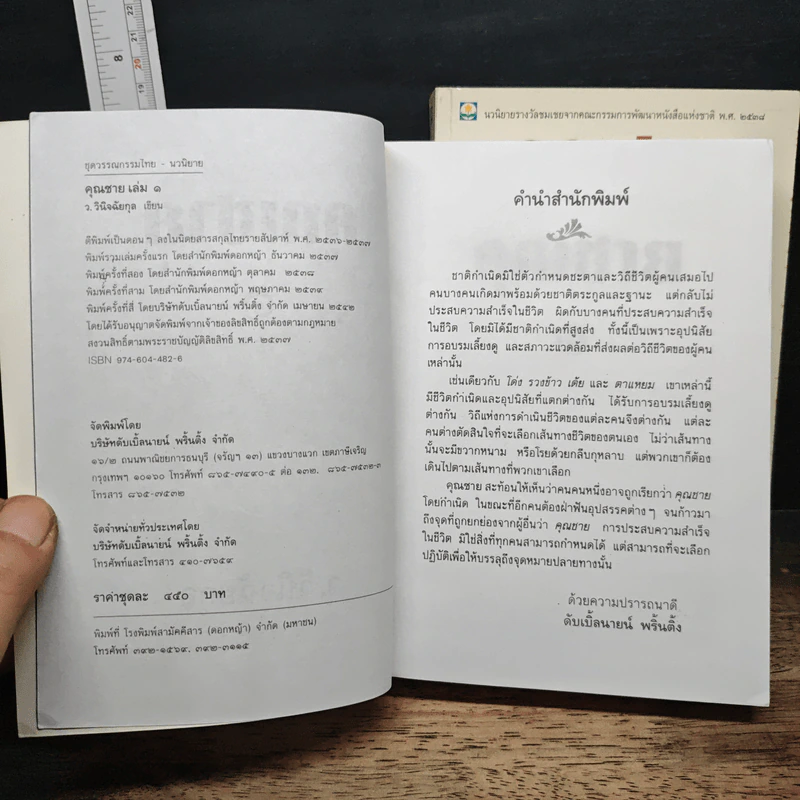 8
22
21
20
19
นวนิยายรางวัลชมเชยจากคณะกรรมการพัฒนาหนังสือแห่งชาติ พ.ศ. ๒๕๓๘
ชุดวรรณกรรมไทย - นวนิยาย
คุณชาย เล่ม ๑
ว. วินิจฉัยกุล เขียน
ตีพิมพ์เป็นตอนๆ ลงในนิตยสารสกุลไทยรายสัปดาห์ พ.ศ. ๒๕๓๖-๒๕๓๗
พิมพ์รวมเล่มครั้งแรก โดยสำนักพิมพ์ดอกหญ้า ธันวาคม ๒๕๓๗
พิมพ์ครั้งที่สอง โดยสำนักพิมพ์ดอกหญ้า ตุลาคม ๒๕๓๘
พิมพ์ครั้งที่สาม โดยสำนักพิมพ์ดอกหญ้า พฤษภาคม ๒๕๓๙
พิมพ์ครั้งที่สี่ โดยบริษัทดับเบิ้ลนายน์ พริ้นติ้ง จำกัด เมษายน ๒๕๔๒
โดยได้รับอนุญาตจัดพิมพ์จากเจ้าของลิขสิทธิ์ถูกต้องตามกฎหมาย
สงวนสิทธิ์ตามพระราชบัญญัติลิขสิทธิ์ พ.ศ. ๒๕๓๗
ISBN 974-604-482-6
จัดพิมพ์โดย
บริษัทดับเบิ้ลนายน์ พริ้นติ้ง จำกัด
๑๖/๒ ถนนพาณิชยการธนบุรี (จรัญฯ ๑๓) แขวงบางแวก เขตภาษีเจริญ
กรุงเทพฯ ๑๐๑๖๐ โทรศัพท์ ๘๖๕-๗๔๙๐-๕ ต่อ ๑๓๒, ๘๖๕-๗๕๓๒-๓
โทรสาร ๘๖๕-๗๕๓๒
จัดจำหน่ายทั่วประเทศโดย
บริษัทดับเบิ้ลนายน์ พริ้นติ้ง จำกัด
โทรศัพท์และโทรสาร ๔๑๐-๗๖๕๙
ราคาชุดละ ๔๕๐ บาท
พิมพ์ที่ โรงพิมพ์สามัคคีสาร (ดอกหญ้า) จำกัด (มหาชน)
โทรศัพท์ ๓๙๒-๑๕๖๙, ๓๙๒-๓๑๑๕
คำนำสำนักพิมพ์
ชาติกำเนิดมิใช่ตัวกำหนดชะตาและวิถีชีวิตผู้คนเสมอไป
คนบางคนเกิดมาพร้อมด้วยชาติตระกูลและฐานะ แต่กลับไม่
ประสบความสำเร็จในชีวิต ผิดกับบางคนที่ประสบความสำเร็จ
ในชีวิต โดยมิได้มีชาติกำเนิดที่สูงส่ง ทั้งนี้เป็นเพราะอุปนิสัย
การอบรมเลี้ยงดู และสภาวะแวดล้อมที่ส่งผลต่อวิถีชีวิตของผู้คน
เหล่านั้น
เช่นเดียวกับ โด่ง รวงข้าว เต้ย และ ตาแหยม เขาเหล่านี้
มีชีวิตกำเนิดและอุปนิสัยที่แตกต่างกัน ได้รับการอบรมเลี้ยงดู
ต่างกัน วิถีแห่งการดำเนินชีวิตของแต่ละคนจึงต่างกัน แต่ละ
คนต่างตัดสินใจที่จะเลือกเส้นทางชีวิตของตนเอง ไม่ว่าเส้นทาง
นั้นจะมีขวากหนาม หรือโรยด้วยกลีบกุหลาบ แต่พวกเขาก็ต้อง
เดินไปตามเส้นทางที่พวกเขาเลือก
คุณชาย สะท้อนให้เห็นว่าคนคนหนึ่งอาจถูกเรียกว่า คุณชาย
โดยกำเนิด ในขณะที่อีกคนต้องฝ่าฟันอุปสรรคต่างๆ จนก้าวมา
ถึงจุดที่ถูกยกย่องจากผู้อื่นว่า คุณชาย การประสบความสำเร็จ
ในชีวิต มิใช่สิ่งที่ทุกคนสามารถกำหนดได้ แต่สามารถที่จะเลือก
ปฏิบัติเพื่อให้บรรลุถึงจุดหมายปลายทางนั้น
ด้วยความปรารถนาดี
ดับเบิ้ลนายน์ พริ้นติ้ง